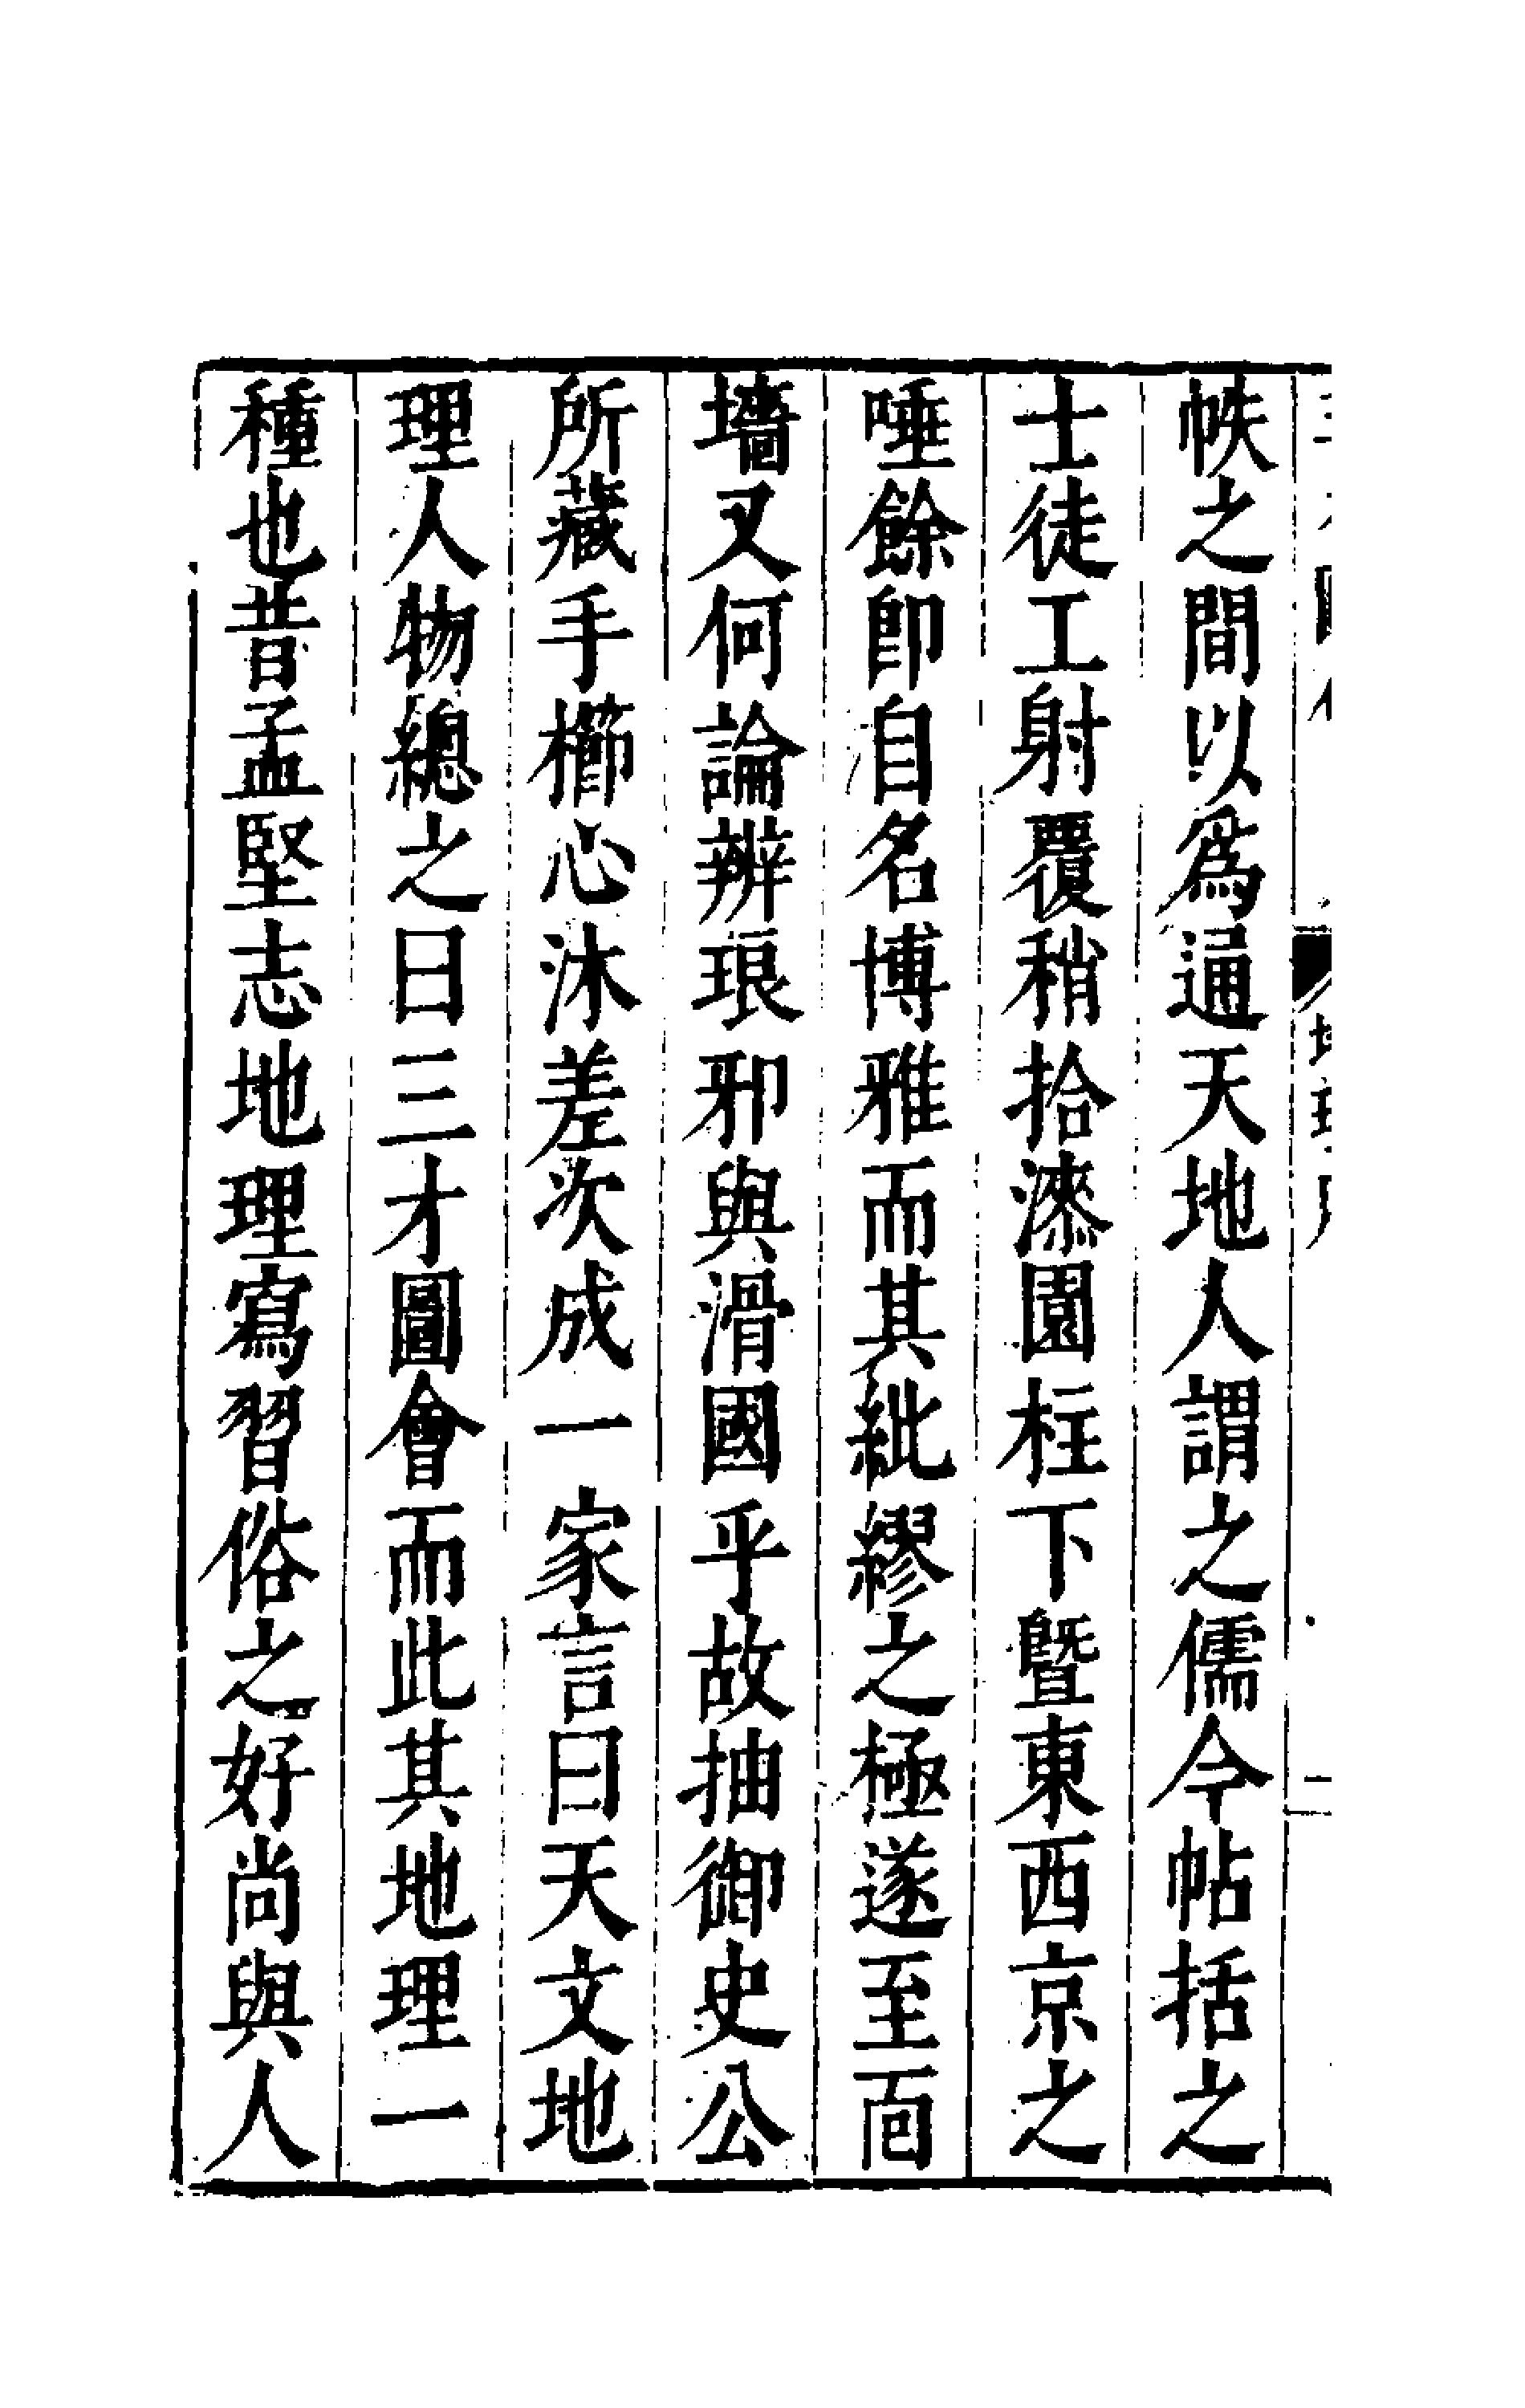 帙之間以爲通天地人謂之儒今帖括之
士徒工射覆稍拾漆園柱下暨東西京之
唾餘卽自名博雅而其紕繆之極遂至面
墻又何論辨琅邪與滑國乎故抽御史公
所藏手櫛心沐差次成一家言曰天文地
理人物總之曰三才圖會而此其地理一
種也昔孟堅志地理寫習俗之好尚與人